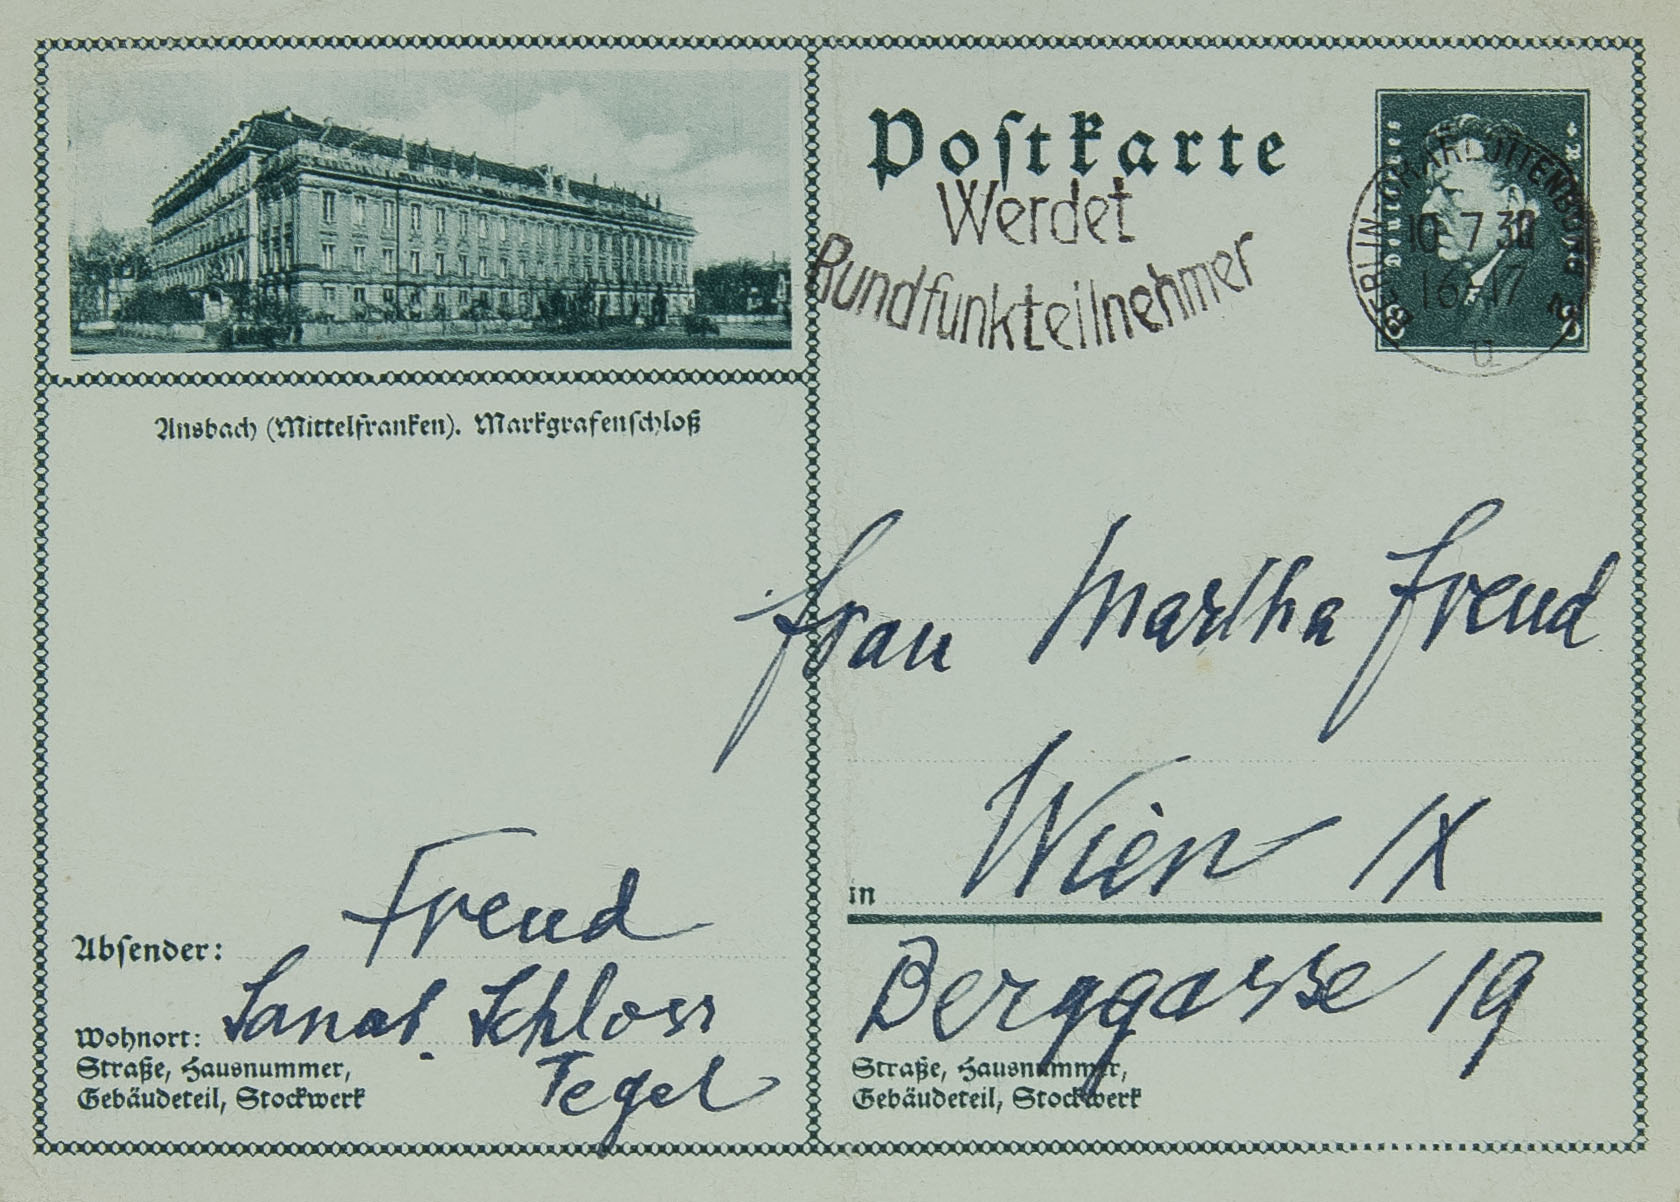 Postkarte
Werdet
Rundfunkteilnehmer
Deutsches Reich
BERLIN-CHARLOTTENBURG 2
10.7.30
16-17
u
8
Ansbach (Mittelfranken). Markgrafenschloß
Frau Martha Freud
in Wien IX
Berggasse 19
Straße, Hausnummer,
Gebäudeteil, Stockwerk
Absender: Freud
Wohnort: Sanat. Schloss
Tegel
Straße, Hausnummer,
Gebäudeteil, Stockwerk